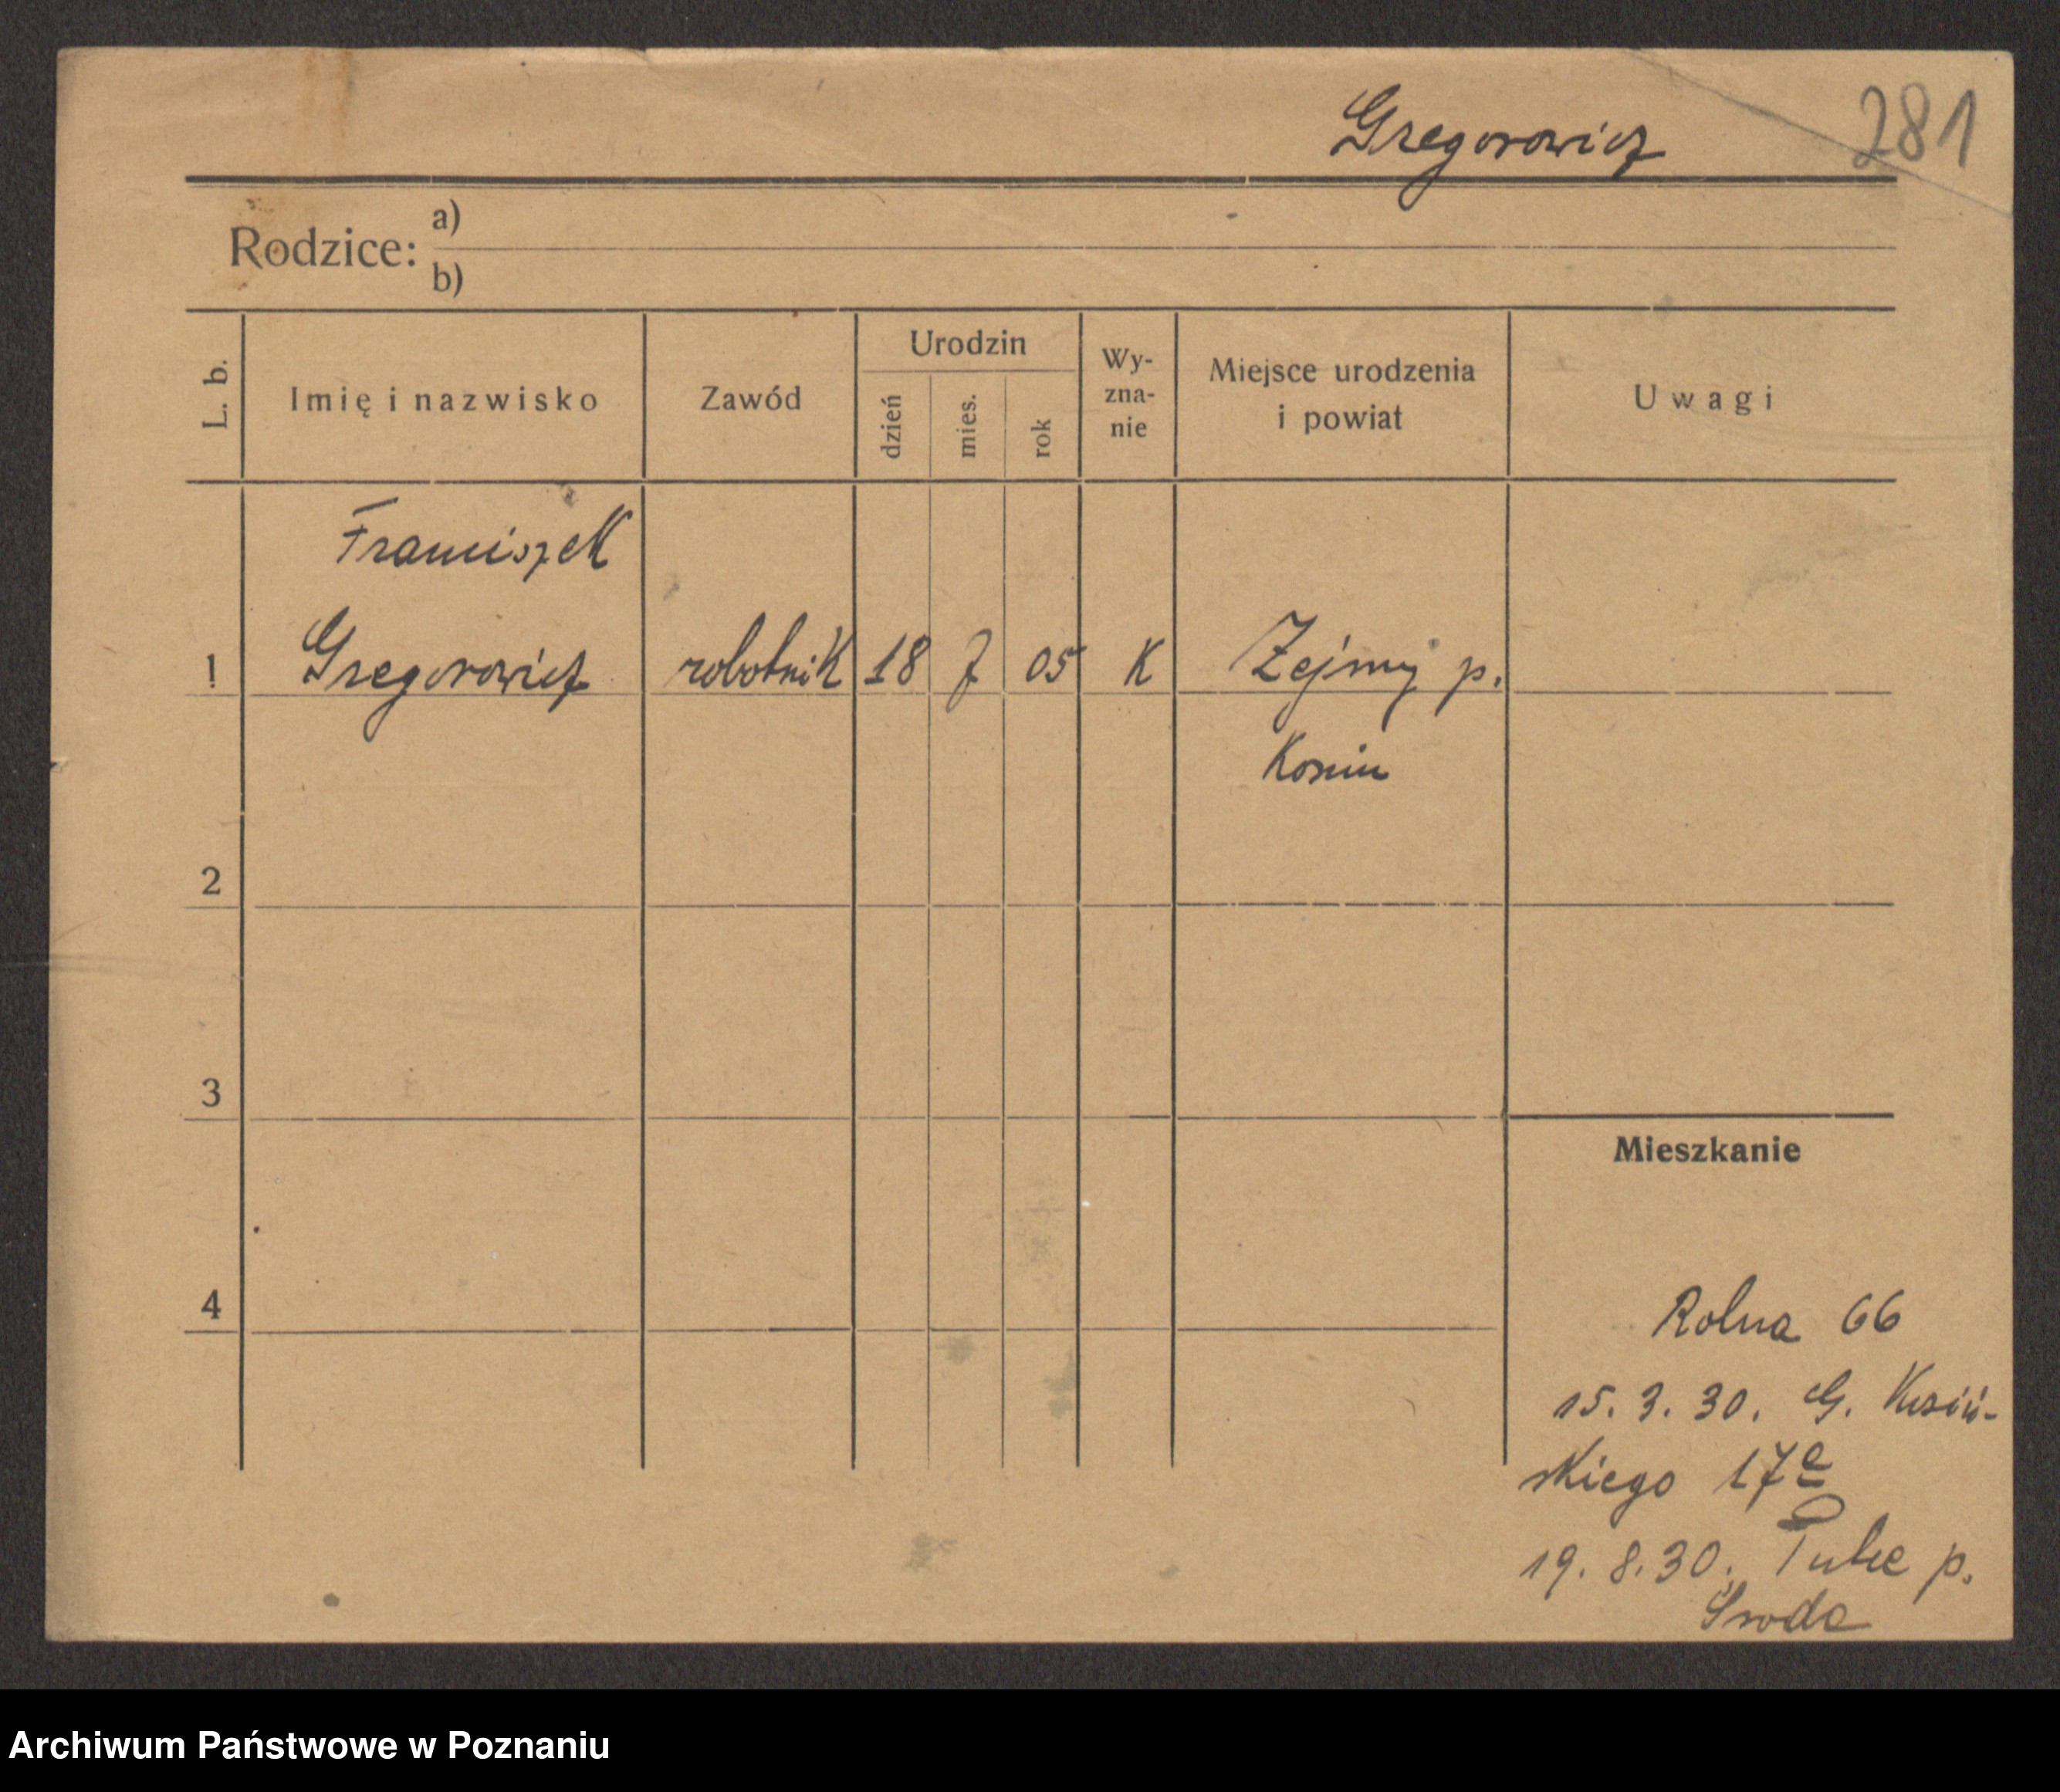 281
Gregorowicz
Rodzice: a)
b)
L. b.
Imię i nazwisko
Zawód
Urodzin
dzień
mies.
rok
Wy-
zna-
nie
Miejsce urodzenia
i powiat
Uwagi
Franciszek
1 Gregorowicz robotnik 18 7 05 K p.
Konin
2
3
Mieszkanie
4
Rolna 66
15. 3. 30. G.
skiego 17a
19. 8. 30. p.
Środa
Archiwum Państwowe w Poznaniu